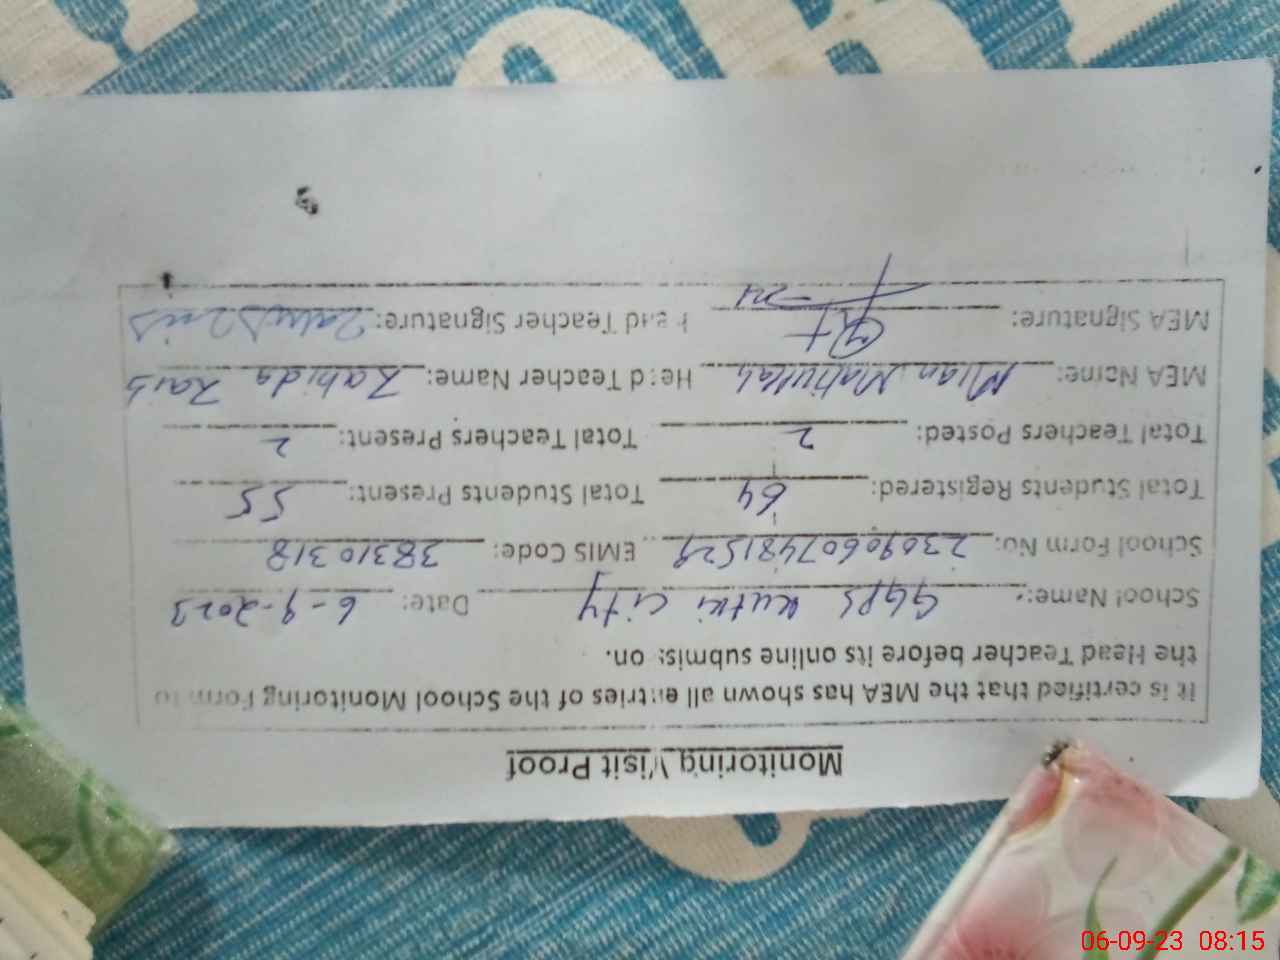 Monitoring Visit Proof
It is certified that the MEA has shown all entries of the School Monitoring Form to
the Head Teacher before its online submission.
School Name: GGPS Kutki City Date: 6-9-2023
School Form No: 23090607481529 EMIS Code: 38310318
Total Students Registered: 64 Total Students Present: 55
Total Teachers Posted: 2 Total Teachers Present: 2
MEA Name: Mian Matiullah Head Teacher Name: Zahida Zaib
MEA Signature: Head Teacher Signature:
06-09-23 08:15